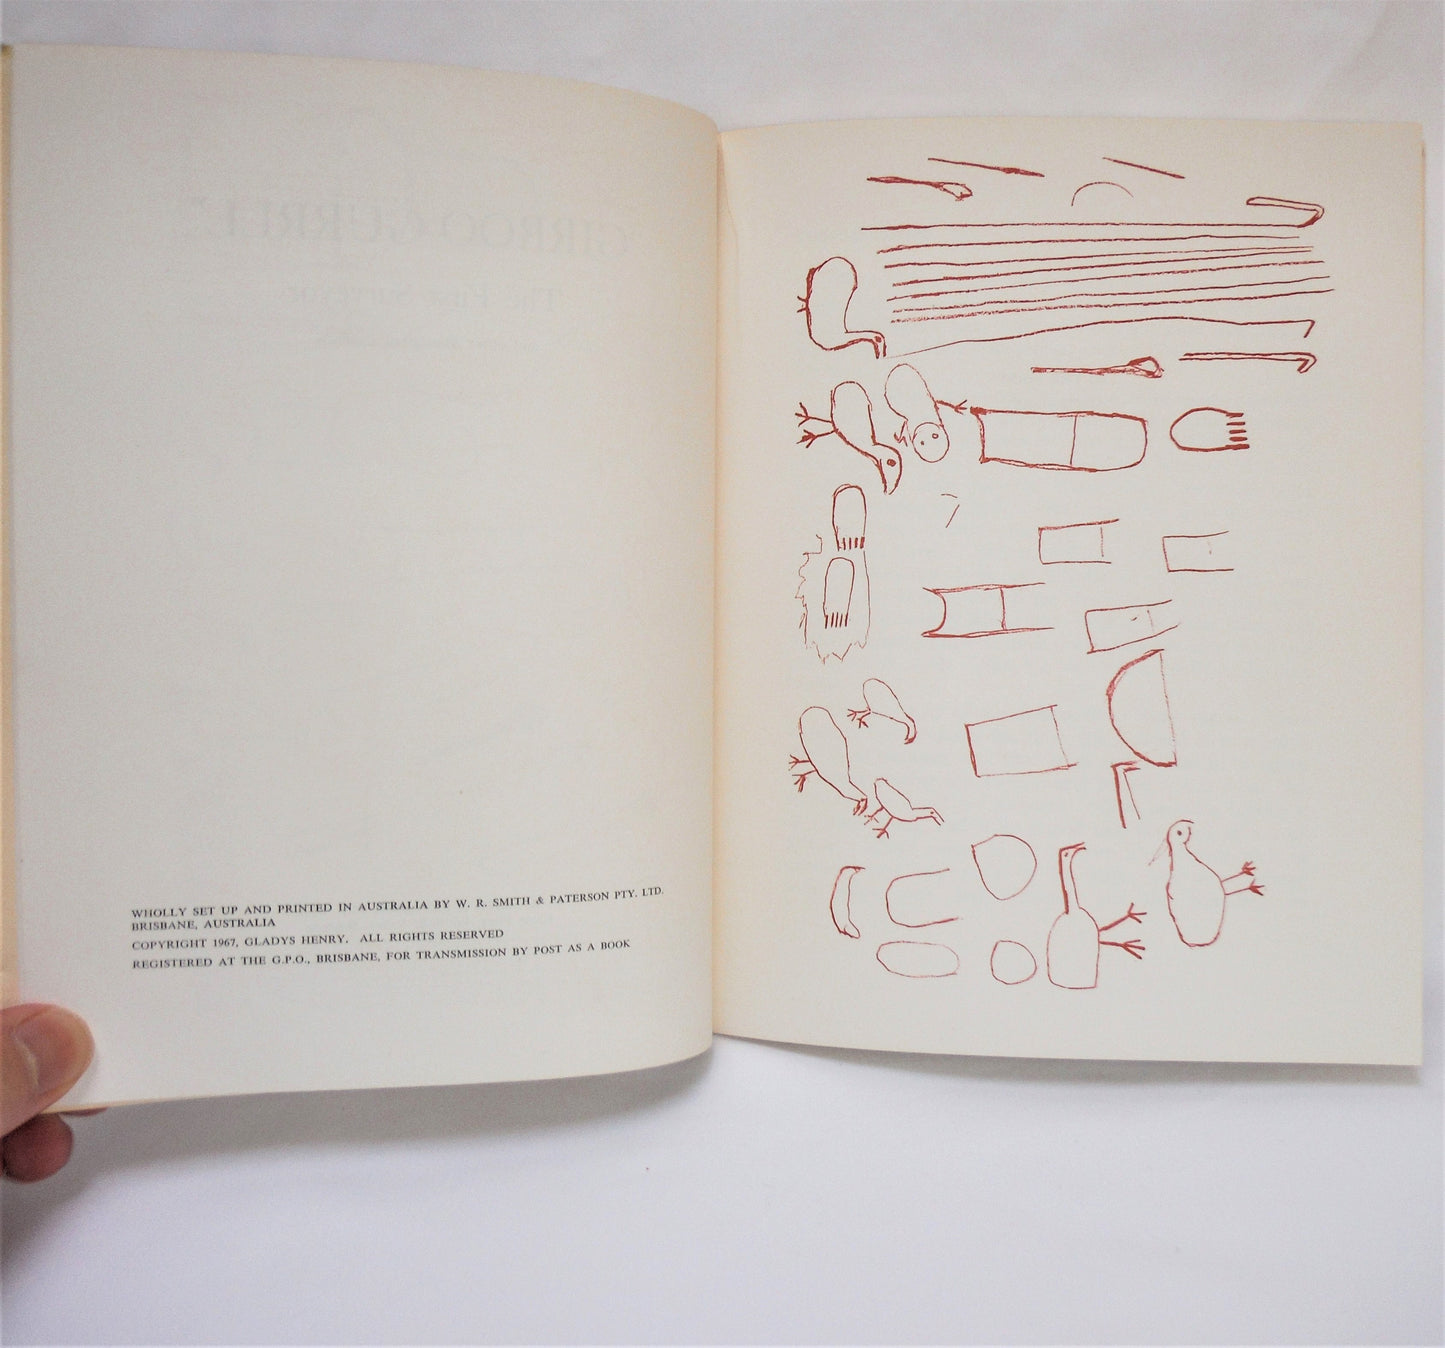 WHOLLY SET UP AND PRINTED IN AUSTRALIA BY W. R. SMITH & PATERSON PTY. LTD.
BRISBANE, AUSTRALIA
COPYRIGHT 1967, GLADYS HENRY. ALL RIGHTS RESERVED
REGISTERED AT THE G.P.O., BRISBANE, FOR TRANSMISSION BY POST AS A BOOK